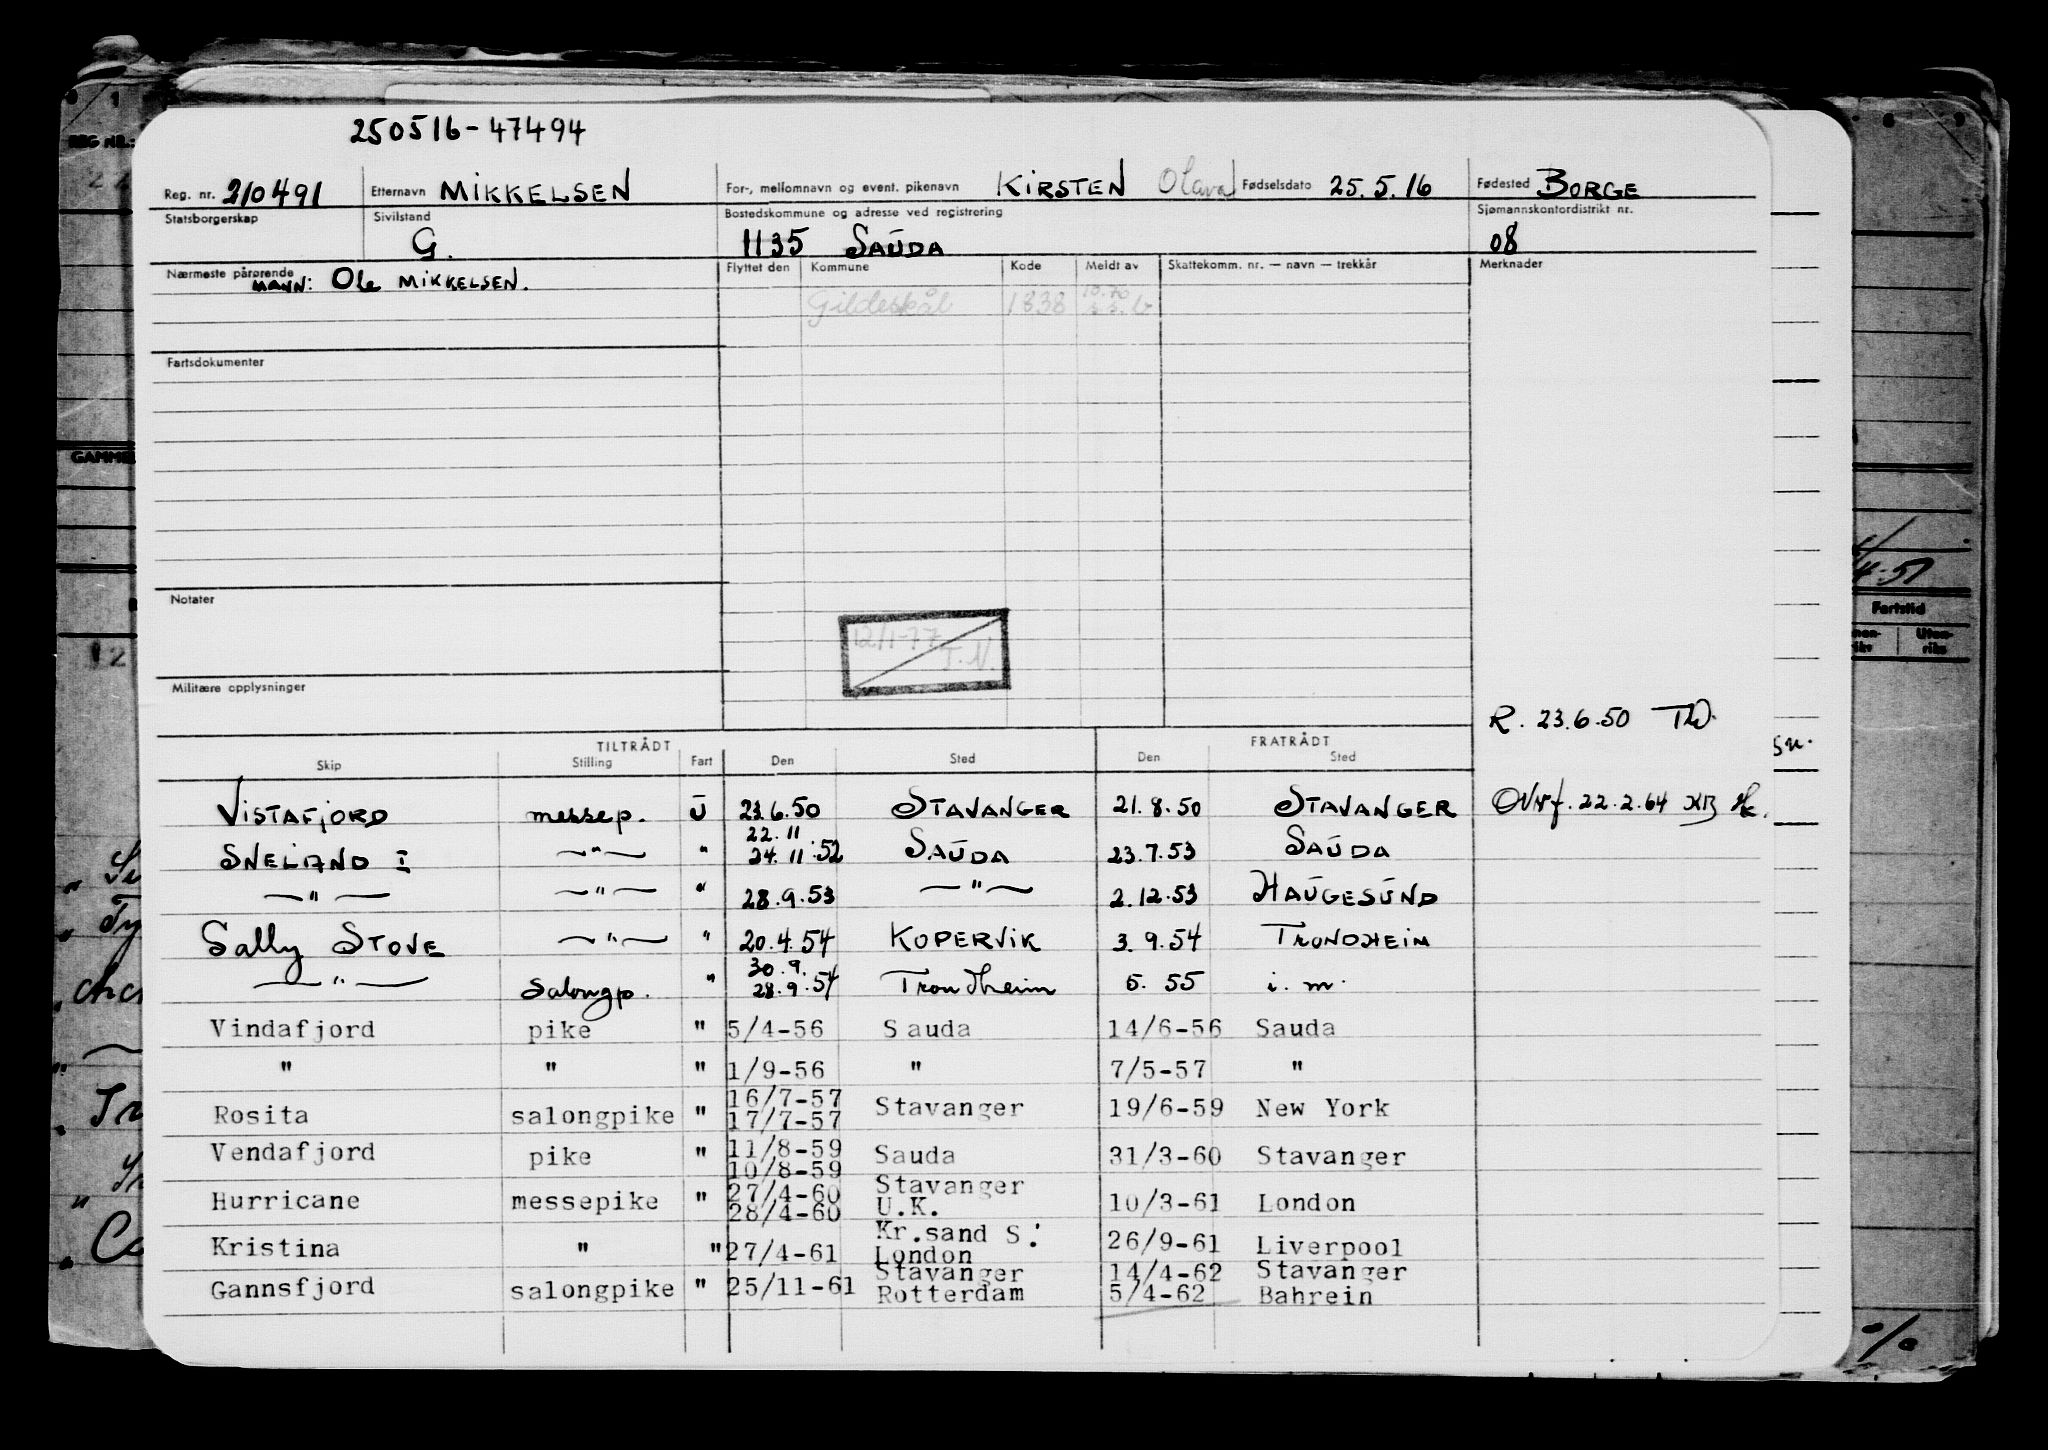 250516-47494
Reg. nr. 210491 Etternavn MIKKELSEN For-, mellomnavn og event. pikenavn KIRSTEN Olava Fødselsdato 25.5.16 Fødested BORGE
Statsborgerskap Sivilstand Bostedskommune og adresse ved registrering Sjømannskontordistrikt nr.
G. 1135 SAUDA 08
Nærmeste pårørende Flyttet den Kommune Kode Meldt av Skattekomm. nr. — navn — trekkår Merknader
MANN: Ole MIKKELSEN.
Gildeskål 1838
Fartsdokumenter
Notater
12/1-77 T.N.
Militære opplysninger
R. 23.6.50
TILTRÅDT FRATRÅDT
Skip Stilling Fart Den Sted Den Sted
VISTAFJORD messep. U 23.6.50 STAVANGER 21.8.50 STAVANGER 22.2.64
22.11
SNELAND I —"— " 24.11.52 SAUDA 23.7.53 SAUDA
—"— —"— " 28.9.53 —"— 2.12.53 HAUGESUND
Sally STOVE —"— " 20.4.54 KOPERVIK 3.9.54 TRONDHEIM
30.9.
—"— Salongp. " 28.9.54 Trondheim 5.55 i. m.
Vindafjord pike " 5/4-56 Sauda 14/6-56 Sauda
" " " 1/9-56 " 7/5-57 "
16/7-57
Rosita salongpike " 17/7-57 Stavanger 19/6-59 New York
11/8-59
Vendafjord pike " 10/8-59 Sauda 31/3-60 Stavanger
27/4-60 Stavanger
Hurricane messepike " 28/4-60 U.K. 10/3-61 London
Kr.sand S.
Kristina " " 27/4-61 London 26/9-61 Liverpool
Stavanger 14/4-62 Stavanger
Gannsfjord salongpike " 25/11-61 Rotterdam 5/4-62 Bahrein
Fartstid